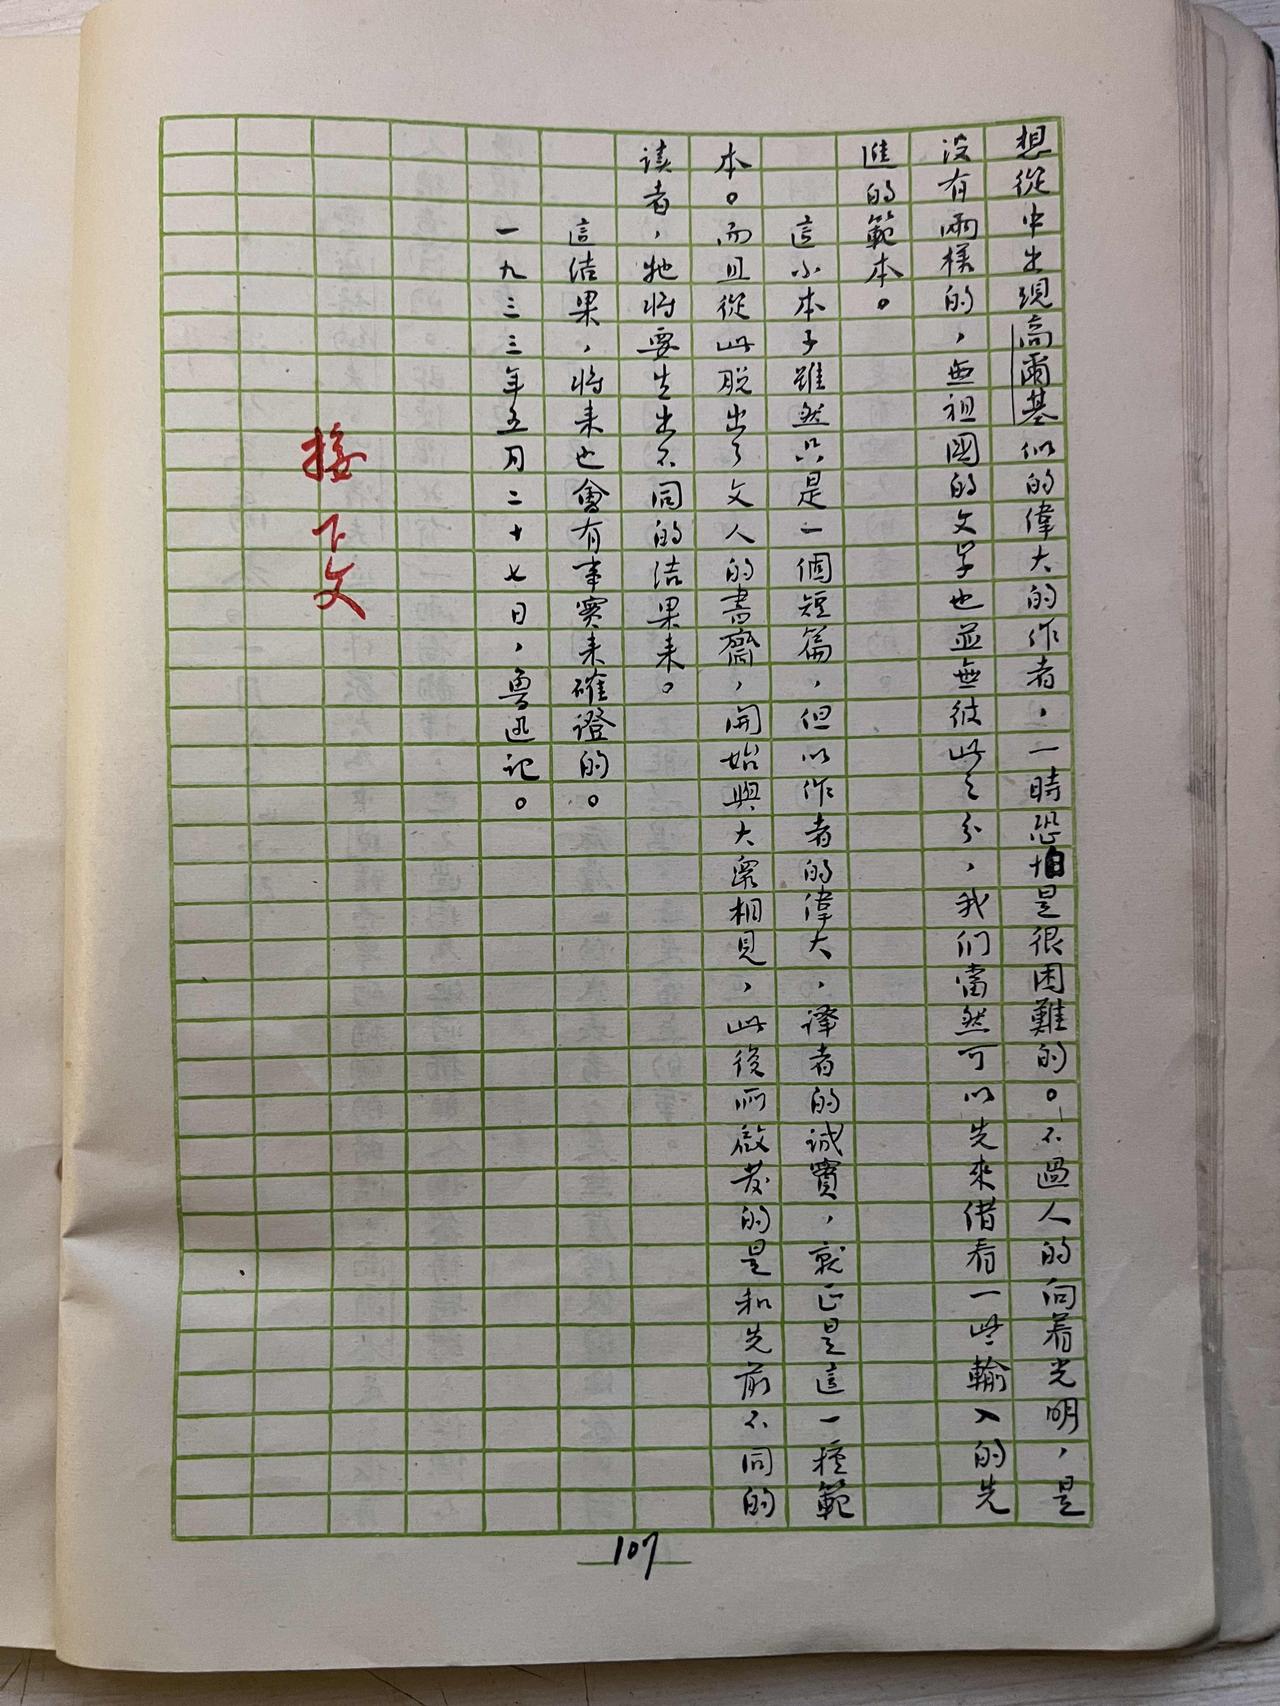 想從中出現高爾基似的偉大的作者，一時恐怕是很困難的。不過人的向着光明，是
没有兩樣的，無祖國的文学也並無彼此之分，我们當然可以先來借看一些輸入的先
進的範本。
這小本子雖然只是一個短篇，但以作者的偉大，譯者的诚實，就正是這一種範
本。而且從此脱出了文人的書齋，開始與大衆相見，此後所啟发的是和先前不同的
读者，牠将要生出不同的结果来。
這结果，将来也會有事實来確證的。
一九三三年五月二十七日，魯迅记。
接下文
107